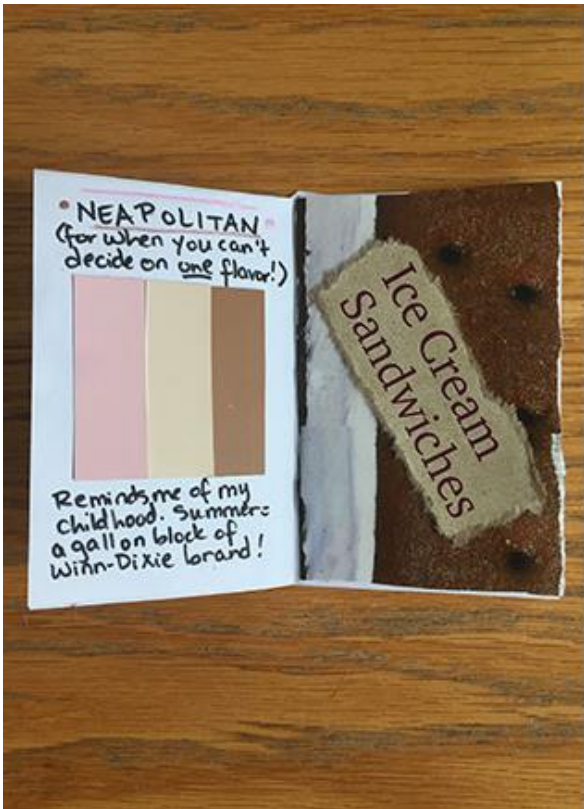 NEAPOLITAN
(for when you can't
decide on one flavor!)
Reminds me of my
childhood. Summer=
a gallon block of
Winn-Dixie brand!
Ice Cream
Sandwiches